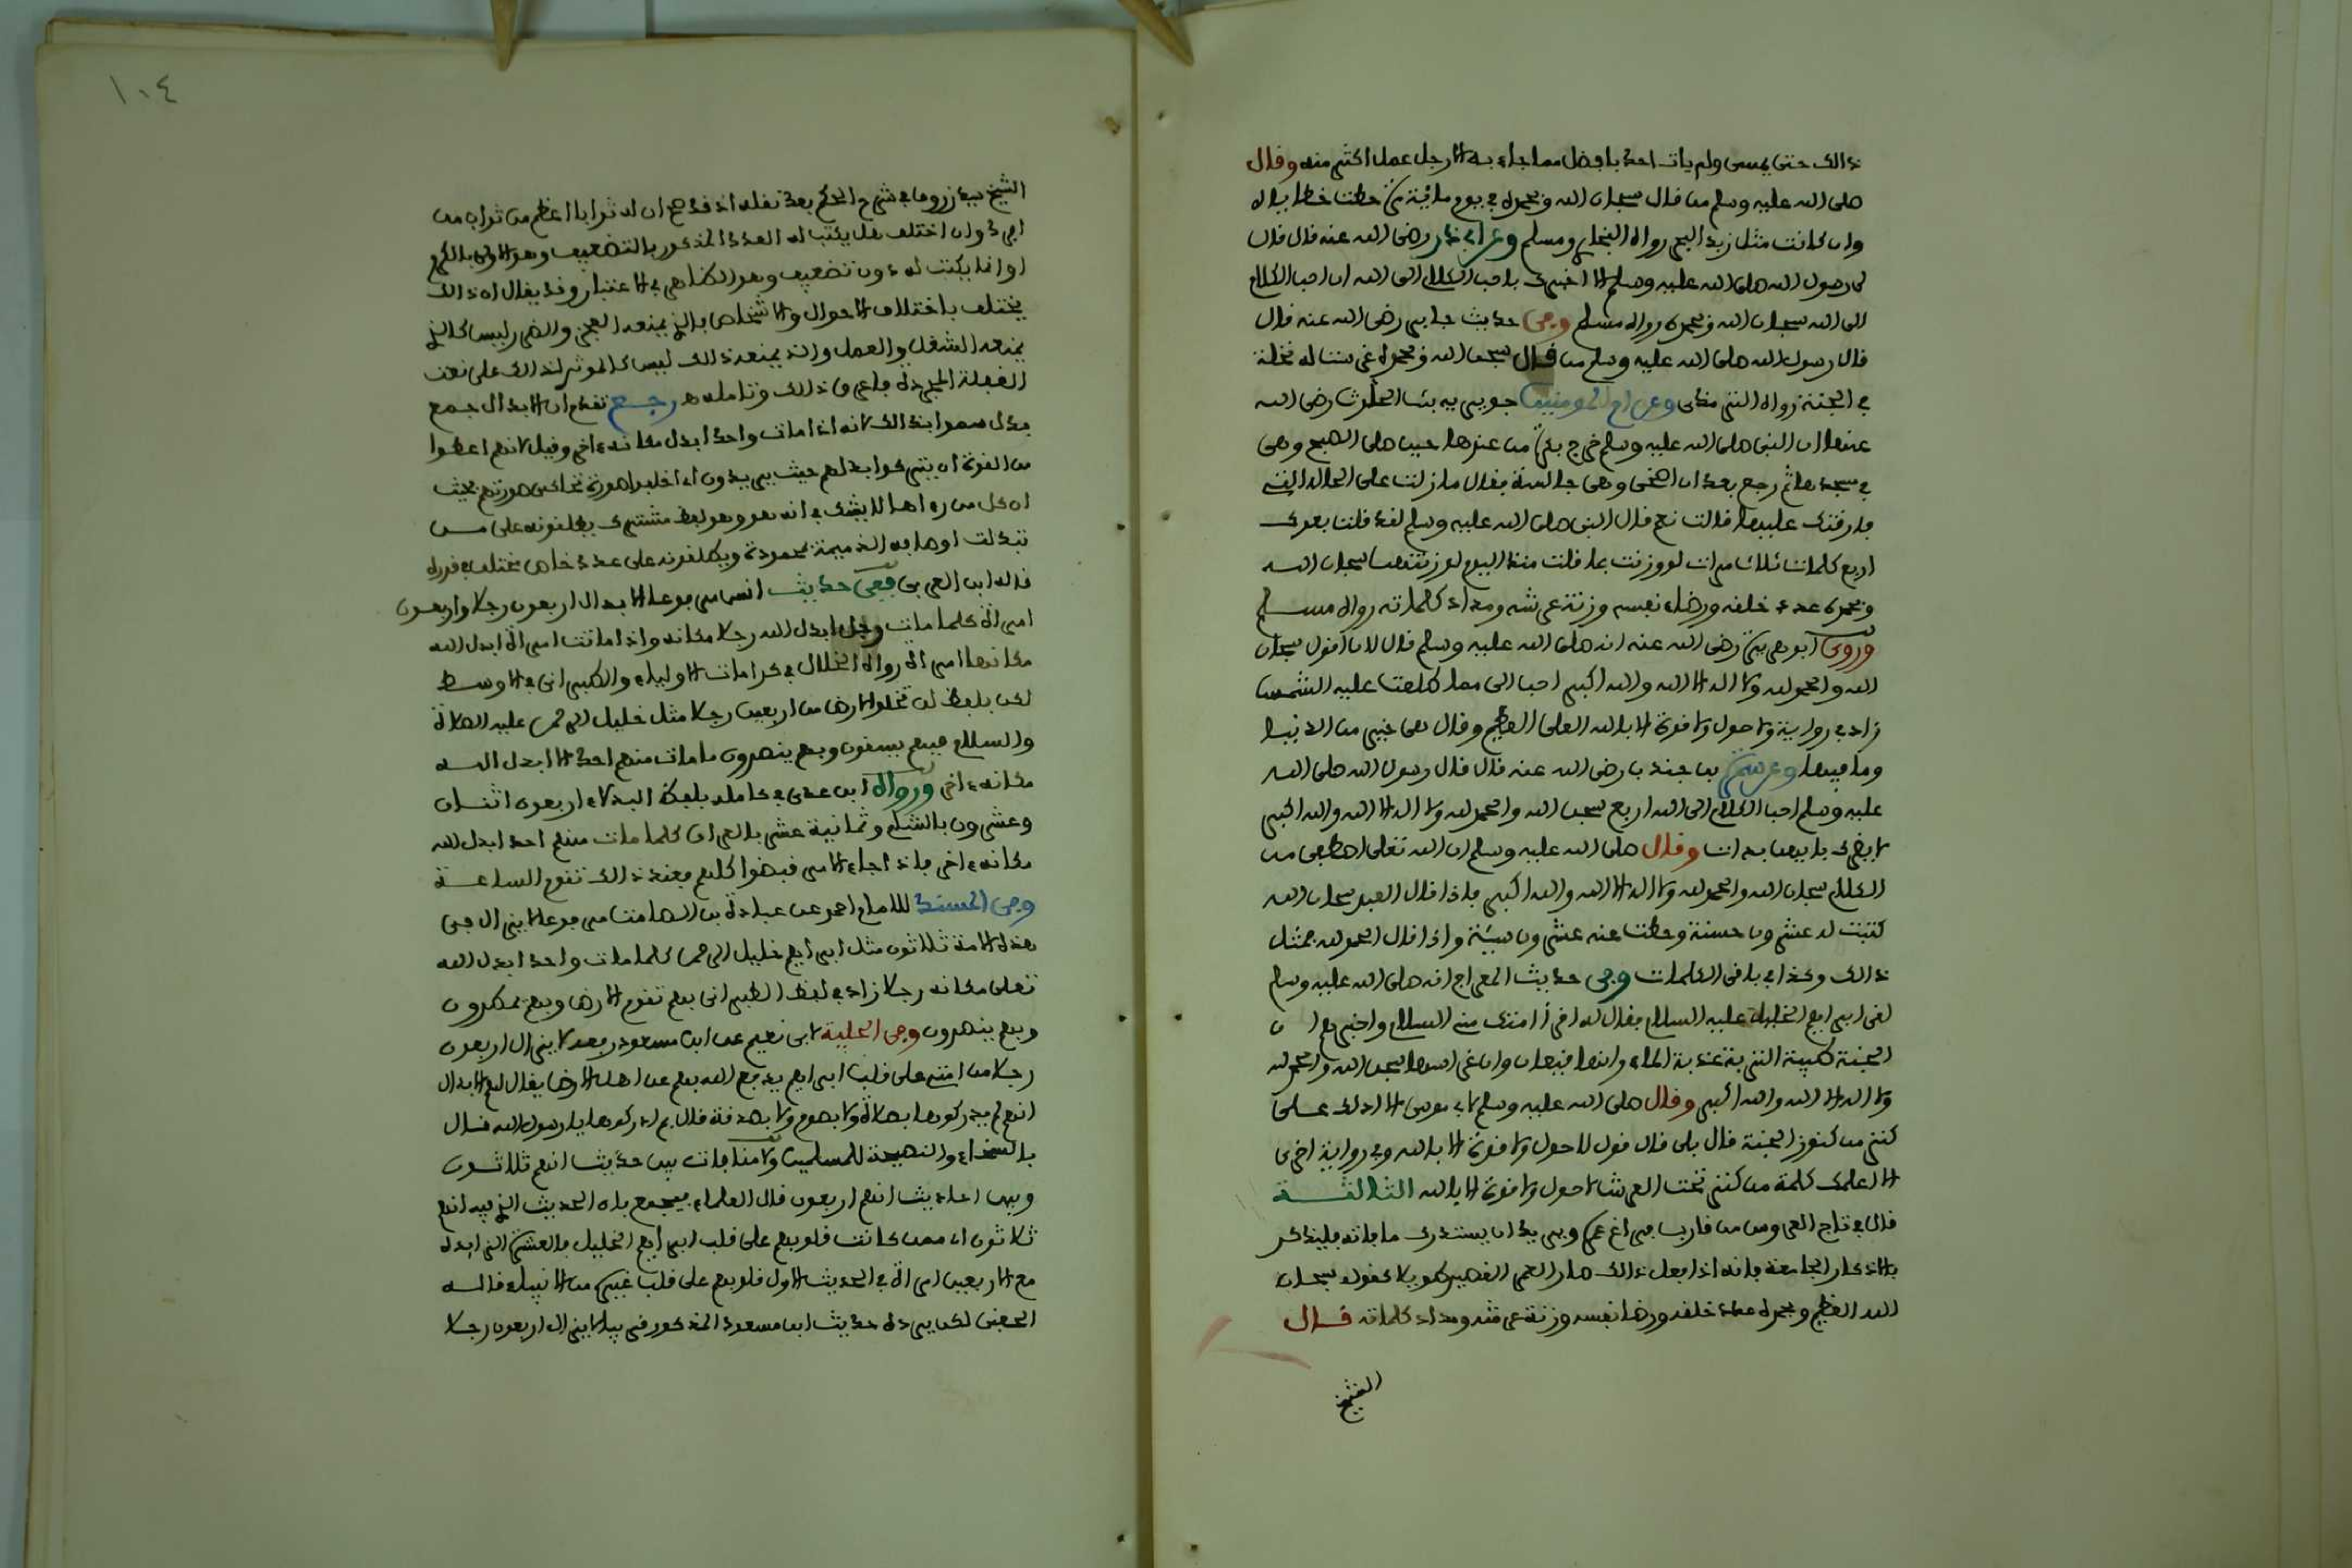 ذالك حتى يمسى ولم يات احد بافضل مما جاء به الا رجل عمل اكثر منه وقال
صلى الله عليه وسلم من قال سبحان الله وبحمده في يوم مائة مرة حطت خطاياه
وان كانت مثل زبد البحر رواه البخاري ومسلم وعن ابي ذر رضى الله عنه قال قال
لي رسول الله صلى الله عليه وسلم الا اخبرك باحب الكلام الى الله ان احب الكلام
الى الله سبحان الله وبحمده رواه مسلم وفى حديث جابر رضى الله عنه قال
قال رسول الله صلى الله عليه وسلم من قال سبحن الله وبحمده غرست له نخلة
في الجنة رواه الترمذى وعن ام المومنين جويرية بنت الحارث رضى الله
عنها ان النبي صلى الله عليه وسلم خرج بكرة من عندها حين صلى الصبح وهى
في مسجدها ثم رجع بعد ان اضحى وهى جالسة فقال ما زلت على الحال التي
فارقتك عليها قالت نعم قال النبي صلى الله عليه وسلم لقد قلت بعدك
اربع كلمات ثلاث مرات لو وزنت بما قلت منذ اليوم لوزنتهن سبحان الله
وبحمده عدد خلقه ورضاء نفسه وزنة عرشه ومداد كلماته رواه مسلم
وروى ابو هريرة رضى الله عنه انه صلى الله عليه وسلم قال لان اقول سبحان
الله والحمد لله ولا اله الا الله والله اكبر احب الى مما طلعت عليه الشمس
زاد في رواية ولا حول ولا قوة الا بالله العلي العظيم وقال هى خير من الدنيا
وما فيها وعن سمرة بن جندب رضى الله عنه قال قال رسول الله صلى الله
عليه وسلم احب الكلام الى الله اربع سبحن الله والحمد لله ولا اله الا الله والله اكبر
لا يضرك بايهن بدات وقال صلى الله عليه وسلم ان الله تعلى اصطفى من
الكلام سبحان الله والحمد لله ولا اله الا الله والله اكبر فاذا قال العبد سبحان الله
كتبت له عشرون حسنة وحطت عنه عشرون سيئة واذا قال الحمد لله فمثل
ذالك وكذا في باقى الكلمات وفى حديث المعراج انه صلى الله عليه وسلم
لقى ابراهيم الخليل عليه السلام فقال له اقرأ امتك مني السلام واخبرهم ان
الجنة طيبة التربة عذبة الماء وانها قيعان وان غراسها سبحن الله والحمد لله
ولا اله الا الله والله اكبر وقال صلى الله عليه وسلم لابي موسى الا ادلك على
كنز من كنوز الجنة قال بلى قال قول لا حول ولا قوة الا بالله وفي رواية اخرى
الا اعلمك كلمة من كنز تحت العرش لا حول ولا قوة الا بالله الثالثة
قال في تاج العروس من قارب فراغ عمره ويريد ان يستدرك ما فاته فليذكر
بالاذكار الجامعة فانه اذا فعل ذالك صار العمر القصير طويلا كقوله سبحان
الله العظيم وبحمده عدد خلقه ورضا نفسه وزنة عرشه ومداد كلماته قال
الشيخ
١٠٤
الشيخ سيد زروق في شرح الحكم بعد نقله اذ قد صح ان له ثوابا اعظم من ثواب من
افرد وان اختلف هل يكتب له العدد المذكور بالتضعيف وهو الاولى بالكرم
او انما يكتب له دون تضعيف وهو الظاهر في الاعتبار وقد يقال ان ذالك
يختلف باختلاف الاحوال والاشخاص فالذي يمنعه العجز والضرر ليس كالذي
يمنعه الشغل والعمل والذي يمنعه ذالك ليس كالموثر لذالك على نعت
الغفلة المجردة فاعرف ذالك وتامله هـ رجع تقدم ان الابدال جمع
بدل سموا بذالك لانه اذا مات واحد ابدل مكانه ءاخر وقيل لانهم اعطوا
من القوة ان يتركوا بدلهم حيث يريدون اي اخلفوا صورة تحاكى صورتهم بحيث
ان كل من رءاها لا يشك في انه هو وهو لفظ مشترك يطلقونه على من
تبدلت اوصافه الذميمة بمحمودة ويطلقونه على عدد خاص مختلف في قدره
قاله ابن العربى ففى حديث انس مرفوعا الابدال اربعون رجلا واربعون
امراة كلما مات رجل ابدل الله رجلا مكانه واذا ماتت امراة ابدل الله
مكانها امراة رواه الخلال في كرامات الاولياء والطبراني في الاوسط
لكن بلفظ لن تخلو الارض من اربعين رجلا مثل خليل الرحمن عليه الصلاة
والسلام فبهم يسقون وبهم ينصرون ما مات منهم احد الا ابدل الله
مكانه ءاخر ورواه ابن عدى في كامله بلفظ البدلاء اربعون اثنان
وعشرون بالشام وثمانية عشر بالعراق كلما مات منهم احد ابدل الله
مكانه ءاخر فاذا جاء الامر قبضوا كلهم فعند ذالك تقوم الساعة
وفى المسند للامام احمد عن عبادة بن الصامت مرفوعا لا يزال في
هذه الامة ثلاثون مثل ابراهيم خليل الرحمن كلما مات واحد ابدل الله
تعلى مكانه رجلا زاد في لفظ الطبراني بهم تقوم الارض وبهم يمطرون
وبهم ينصرون وفى الحلية لابى نعيم عن ابن مسعود رفعه لا يزال اربعون
رجلا من امتي على قلب ابراهيم يدفع الله بهم عن اهل الارض يقال لهم الابدال
انهم لم يدركوها بصلاة ولا بصوم ولا بصدقة قال بم ادركوها يا رسول الله قال
بالسخاء والنصيحة للمسلمين ولا منافات بين حديث انهم ثلاثون
وبين احاديث انهم اربعون قال العلماء فيجمع بان الحديث الذي فيه انهم
ثلاثون اي ممن كانت قلوبهم على قلب ابراهيم الخليل فالعشرة التي ابدله
مع الاربعين امراة في الحديث الاول قلوبهم على قلب غيره من الانبياء قاله
الحفنى لكن يرده حديث ابن مسعود المذكور لا يزال اربعون رجلا